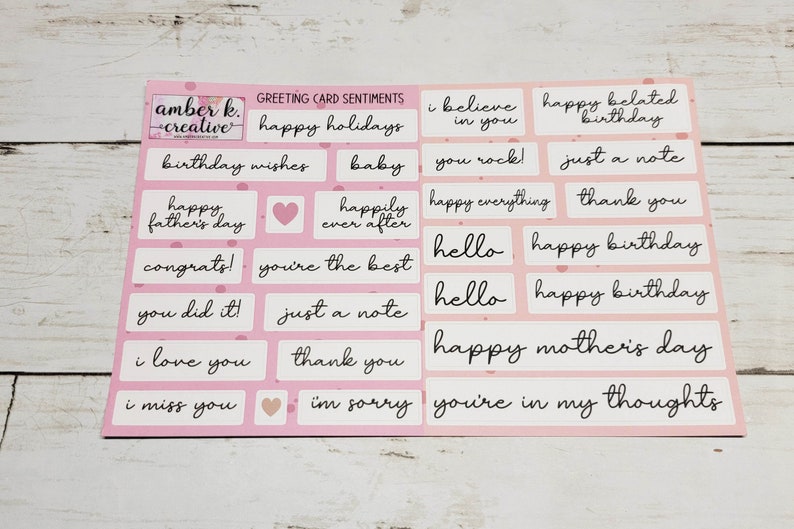 amber k.
creative
www.amberkcreative.com
GREETING CARD SENTIMENTS
happy holidays
birthday wishes
baby
happy
father's day
happily
ever after
congrats!
you're the best
you did it!
just a note
i love you
thank you
i miss you
i'm sorry
i believe
in you
happy belated
birthday
you rock!
just a note
happy everything
thank you
hello
happy birthday
hello
happy birthday
happy mother's day
you're in my thoughts